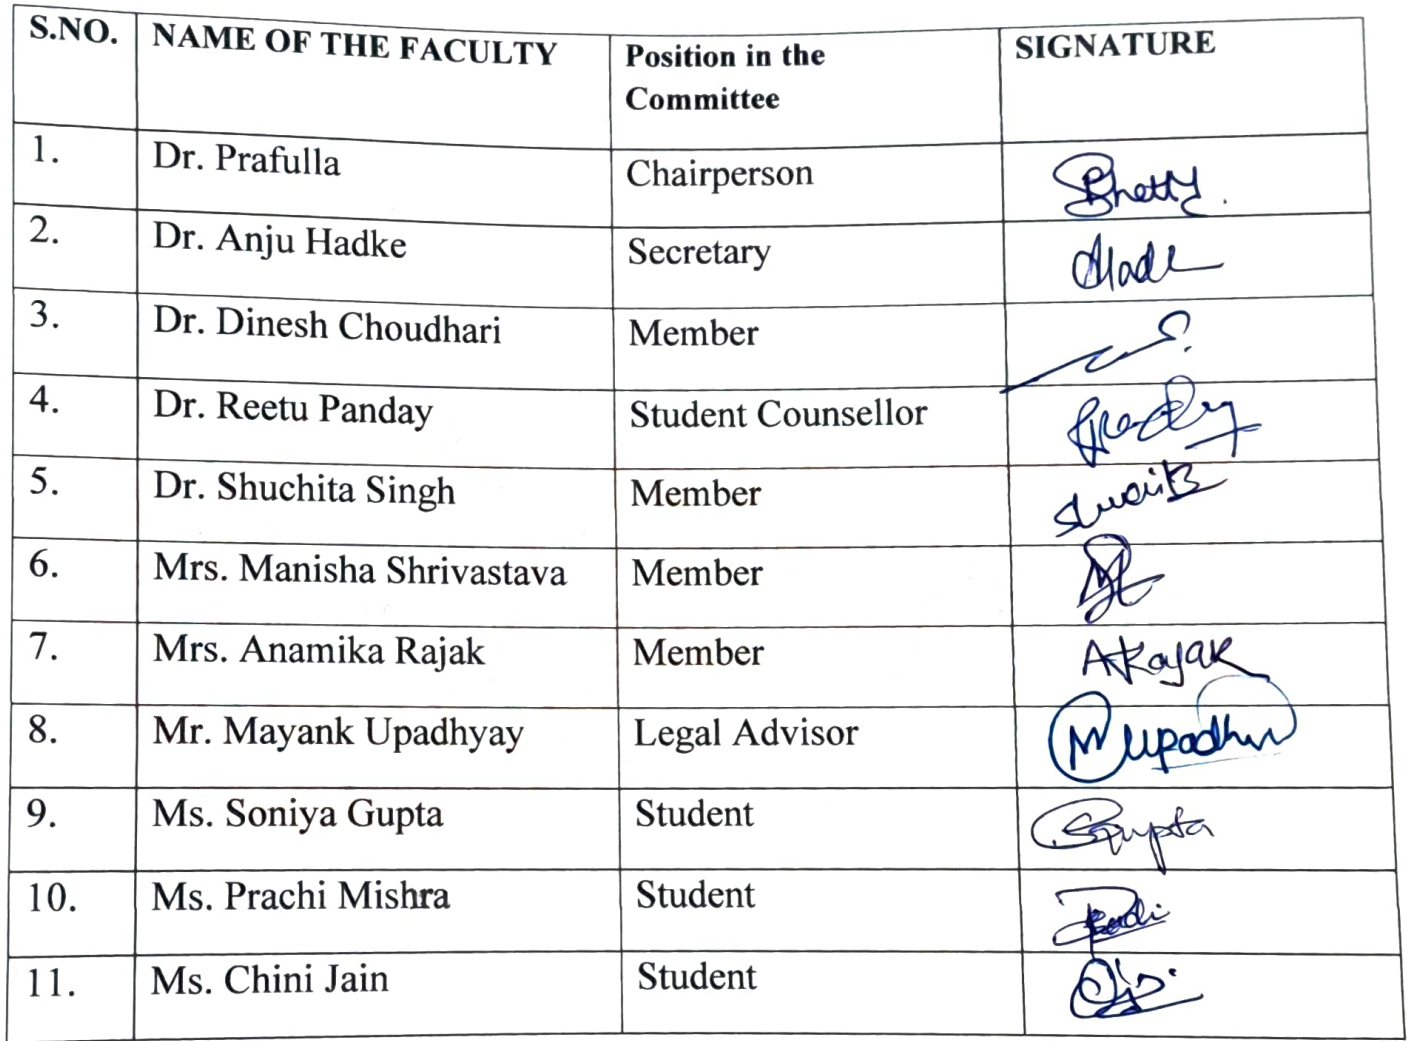 S.NO. NAME OF THE FACULTY Position in the Committee SIGNATURE
1. Dr. Prafulla Chairperson Shetty.
2. Dr. Anju Hadke Secretary
3. Dr. Dinesh Choudhari Member
4. Dr. Reetu Panday Student Counsellor
5. Dr. Shuchita Singh Member
6. Mrs. Manisha Shrivastava Member
7. Mrs. Anamika Rajak Member ARajak
8. Mr. Mayank Upadhyay Legal Advisor
9. Ms. Soniya Gupta Student SGupta
10. Ms. Prachi Mishra Student
11. Ms. Chini Jain Student